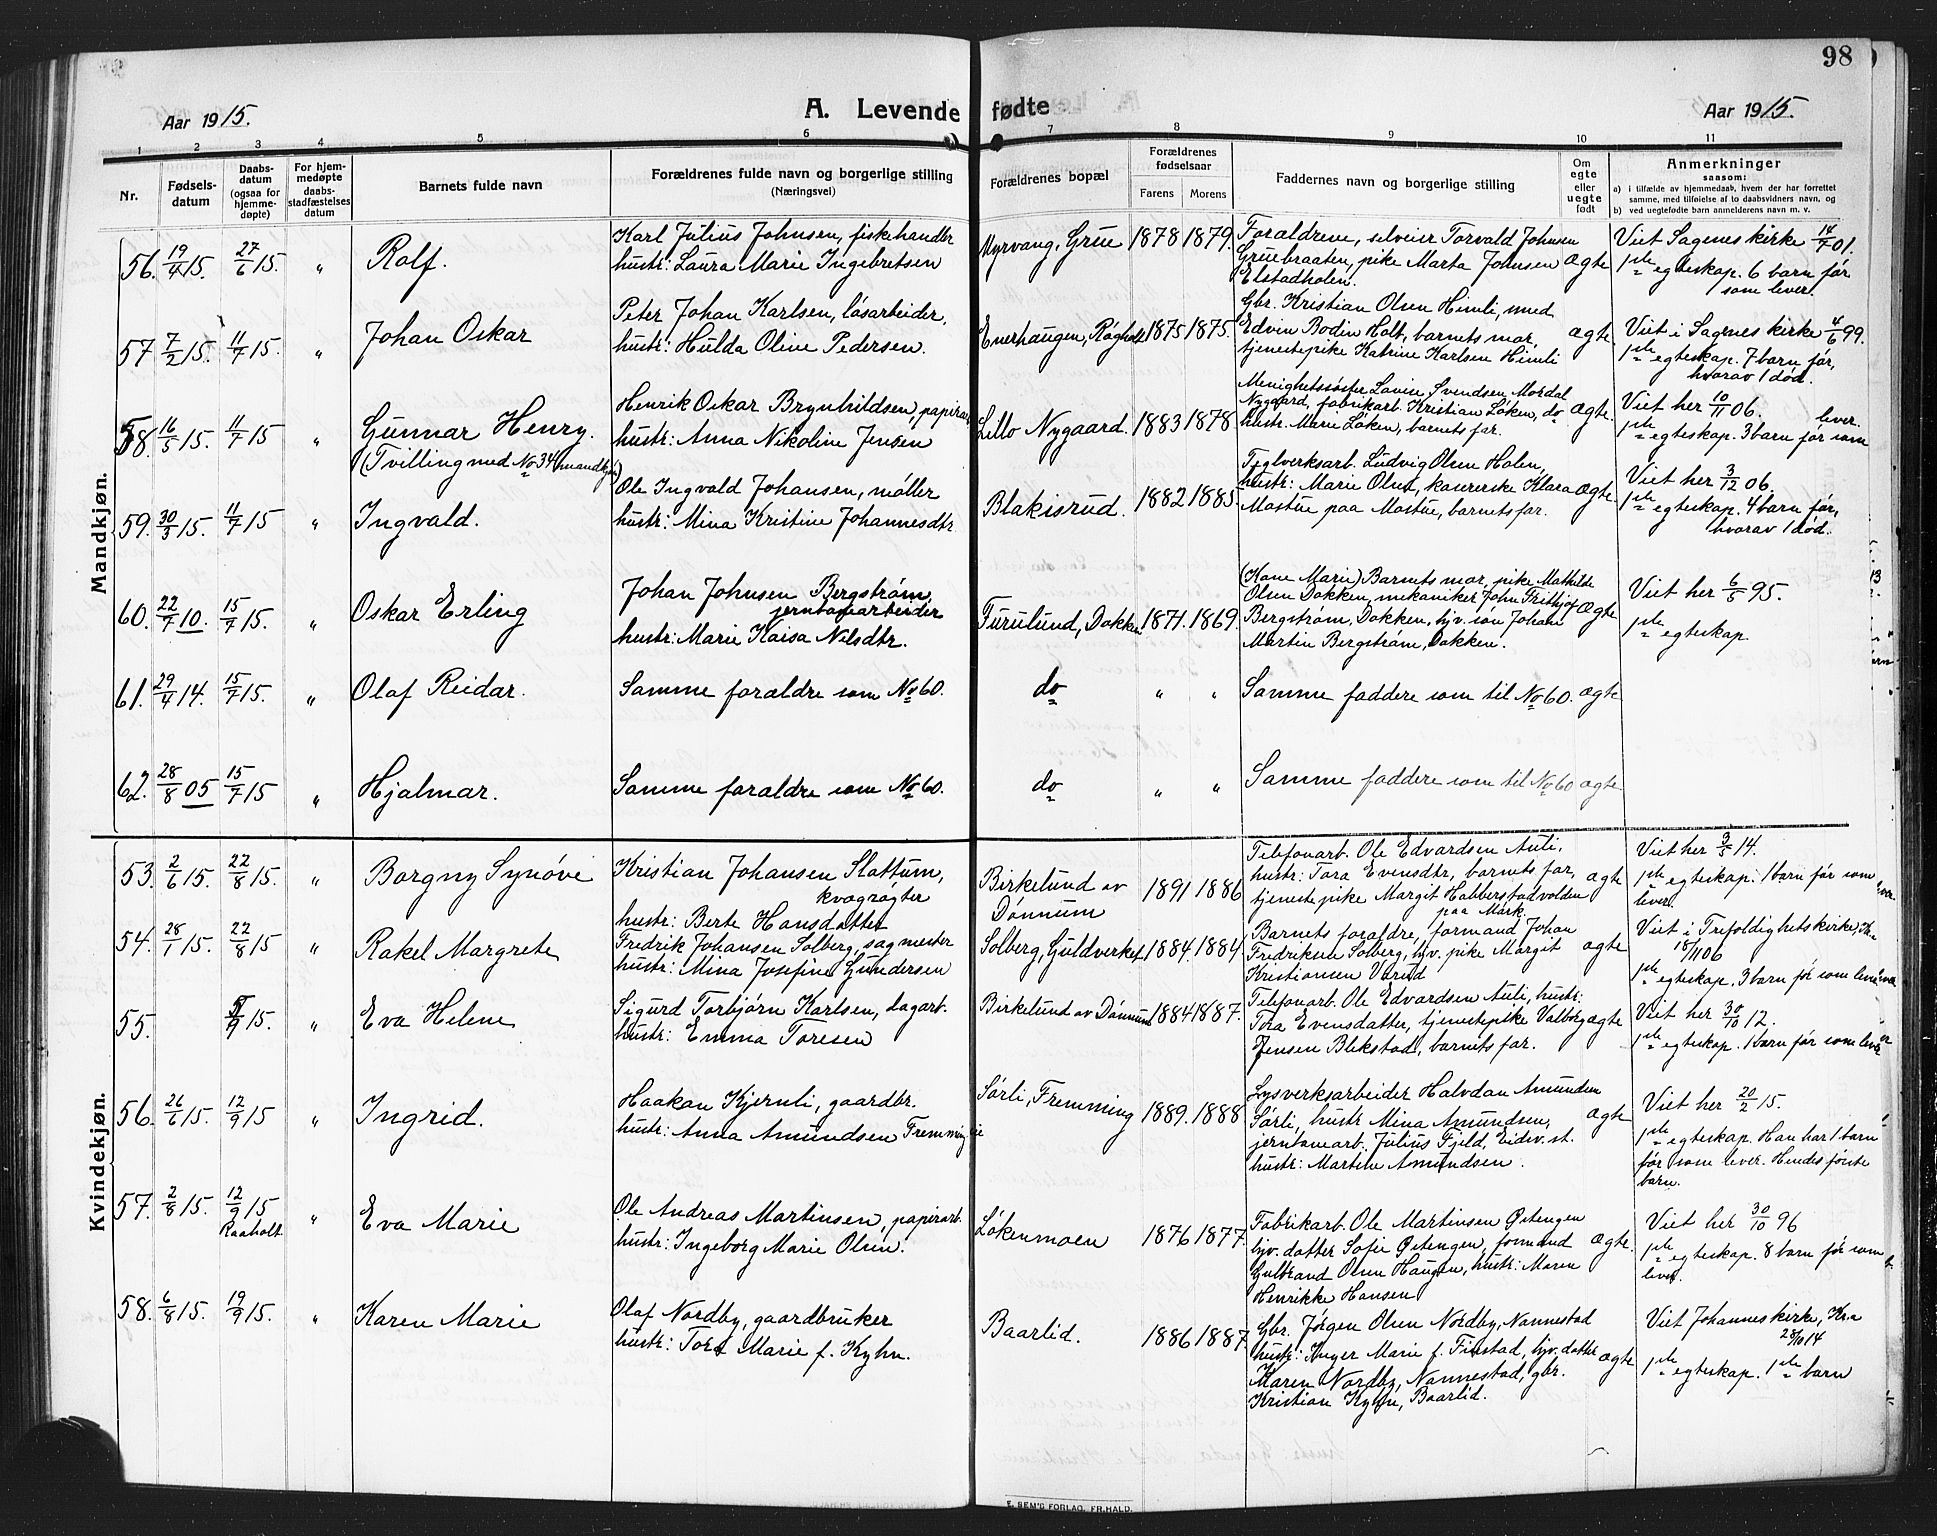 98
Aar 1915.
A. Levende fødte
Aar 1915.
1 2 3 4 5 6 7 8 9 10 11
Nr.
Fødsels-
datum
Daabs-
datum
(ogsaa for
hjemme-
døpte)
For hjem-
medøpte
daabs-
stadfæstelses
datum
Barnets fulde navn
Forældrenes fulde navn og borgerlige stilling
(Næringsvei)
Forældrenes bopæl
Forældrenes
fødselsaar
Farens Morens
Faddernes navn og borgerlige stilling
Om
egte
eller
uegte
født
Anmerkninger
saasom:
a) i tilfælde av hjemmedaab, hvem der har forrettet
samme, med tilføielse af to daabsvidners navn, og
b) ved uegtefødte børn anmelderens navn m. v.
Mandkjøn.
56. 19/4 15. 27/6 15. " Rolf.
Karl Julius Johnsen, fiskehandler
hustr: Laura Marie Ingebretsen
Myrvang, Grue 1878 1879.
Foraldrene, selveier Torvald Johnsen
Gruebraaten, pike Marta Johnsen
Elstadholen.
ægte
Viet Sagenes kirke 14/7 01.
1ste egteskap. 6 barn før
som lever.
57. 7/2 15. 11/7 15. " Johan Oskar
Peter Johan Karlsen, løsarbeider,
hustr: Hulda Olive Pedersen.
Enerhaugen, Røgholt 1875 1875.
Gbr. Kristian Olsen Himli, med
Edvin Bodin Holt, barnets mor,
tjenestepike Katrine Karlsen Himli
ægte.
Viet i Sagenes kirke 4/6 99.
1ste egteskap. 7 barn før,
hvorav 1 død.
58. 16/5 15. 11/7 15 " Gunnar Henry.
(Tvilling med No 34 mandkjøn)
Henrik Oskar Brynhildsen, papirarb.
hustr: Anna Nikoline Jensen
Lillo Nygaard. 1883 1878
Menighetssøster Lovise Svendsen, Mordal
Nygaard, fabrikarb. Kristian Løken, do
hustr. Marie Løken, barnets far.
ægte.
Viet her 10/11 06.
1ste egteskap. 3 barn før som
lever.
59. 30/3 15. 11/7 15 " Ingvald.
Ole Ingvald Johansen, møller
hustr: Mina Kristine Johannesdtr.
Blakisrud. 1882 1885.
Teglverksarb. Ludvig Olsen Holen,
hustr: Marie Olsen, kanerske Klara
Mostue paa Mostue, barnets far.
ægte.
Viet her 3/12 06.
1ste egteskap. 4 barn før,
hvorav 1 død.
60. 22/7 10. 15/7 15. " Oskar Erling
Johan Johnsen Bergstrøm,
jerntomtearbeider
hustr: Marie Kaisa Nilsdtr.
Furulund, Dokken 1871. 1869.
(Kone Marie) Barnets mor, pike Mathilde
Olsen Dokken, mekaniker John Frithjof
Bergstrøm, Dokken, hjv. søn Johan
Martin Bergstrøm, Dokken.
ægte
Viet her 6/5 95.
1ste egteskap
61. 29/4 14. 15/7 15. " Olaf Reidar.
Samme foraldre som No 60.
do " "
Samme faddere som til No 60. ægte
62. 28/8 05 15/7 15 " Hjalmar.
Samme foraldre som No 60.
do " "
Samme faddere som til No 60 ægte
Kvindekjøn.
53. 2/6 15. 22/8 15. " Borgny Synøve
Kristian Johansen Slattum,
kvægrøgter
hustr: Berte Hansdatter
Birkelund av
Dønnum
1891 1886
Telefonarb. Ole Edvardsen Auli,
hustr: Tora Evensdtr, barnets far,
tjenestepike Margit Habberstadvolden
paa Mork.
ægte
Viet her 3/5 14.
1ste egteskap. 1 barn før som
lever.
54. 28/7 15. 22/8 15 " Rakel Margrete
Fredrik Johansen Solberg, sagmester
hustr: Mina Josefine Gundersen
Solberg, Guldverket 1884. 1884
Barnets foraldre, formand Johan
Fredriksen Solberg, hjv. pike Margit
Kristiansen Varud
ægte
Viet i Trefoldighetskirke, Kr.a
18/11 06
1ste egteskap. 3 barn før som lever
55. 5/9 15. " Eva Helene
Sigurd Torbjørn Karlsen, dagarb.
hustr: Emma Toresen
Birkelund av Dønnum 1884 1887.
Telefonarb. Ole Edvardsen Auli, hustr:
Tora Evensdatter, tjenestepike Valborg
Jensen Blekstad, barnets far.
ægte
Viet her 30/10 12.
1ste egteskap. 1 barn før som lever
56. 26/6 15. 12/9 15 " Ingrid.
Haakan Kjernli, gaardbr.
hustr: Anna Amundsen Fremming
Sørli, Fremming 1889. 1888
Lysverksarbeider Halvdan Amundsen
Sørli, hustr Mina Amundsen,
jerntomarb. Julius Fjeld, Eidsv. st.
hustr: Martin Amundsen.
ægte
Viet her 20/2 15.
1ste egteskap. Han har 1 barn
før som lever. Hendes første
barn.
57. 2/8 15. 12/9 15 " Eva Marie
Raaholt
Ole Andreas Martinsen, papirarb.
hustr: Ingeborg Marie Olsen.
Løkenmoen 1876 1877.
Fabrikarb. Ole Martinsen Østengen
hjv. datter Sofie Østengen, formand
Gulbrand Olsen Haugen, hustr: Maren
Henrikke Hansen
ægte.
Viet her 30/10 96
1ste egteskap. 8 barn før som
lever.
58. 6/8 15. 19/9 15. " Karen Marie
Olaf Nordby, gaardbruker
hustr: Tora Marie f. Kyhn.
Baarlid. 1886 1887
Gbr. Jørgen Olsen Nordby, Nannestad
hustr: Inger Marie f. Finstad, hjv. datter
Maren Nordby, Nannestad, gbr.
Kristian Kyhn, Baarlid.
ægte
Viet Johannes kirke, Kr.a
28/10 14
1ste egteskap. 1ste barn
E. SEM'S FORLAG, FR.HALD.